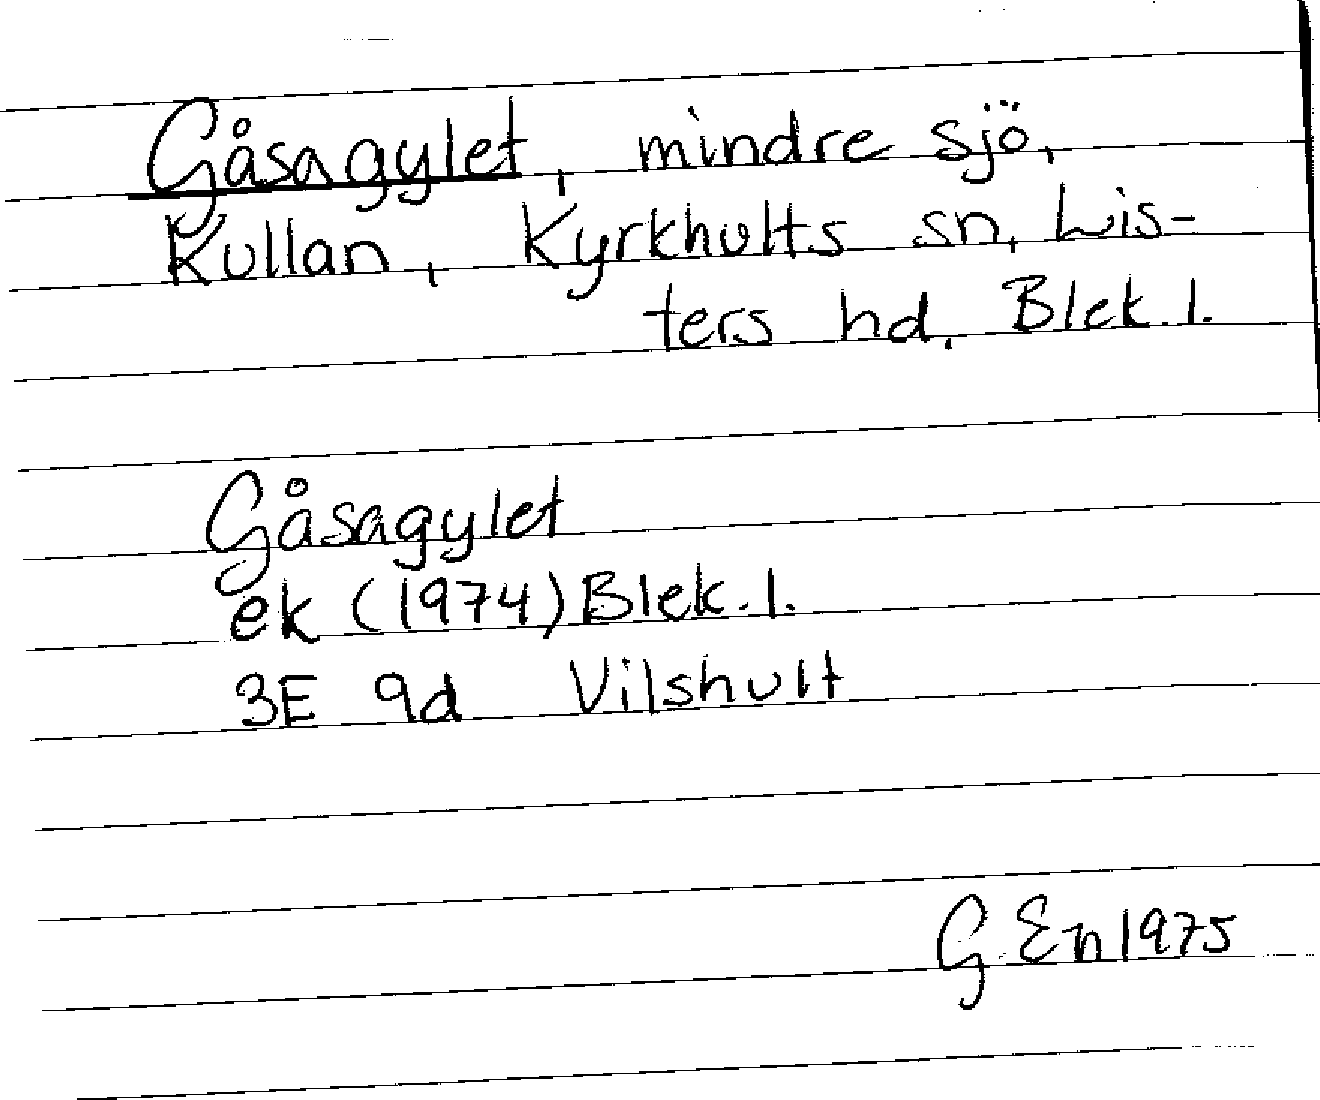 Gåsagylet, mindre sjö,
Kullan, Kyrkhults sn, Lis-
ters hd, Blek. l.
Gåsagylet
ek (1974) Blek. l.
3E 9d Vilshult
G. En 1975